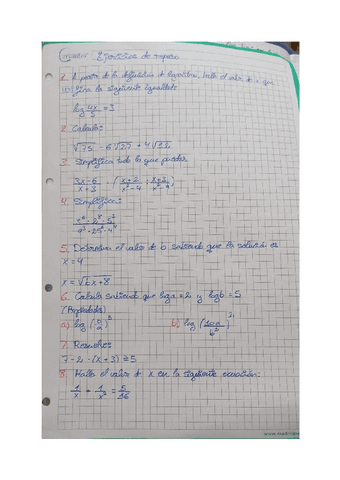 Ejercicios de repaso
1. A partir de la definición de logaritmo, halla el valor de x que
la siguiente igualdad:
log 4x/5 = 3
2. Calcula:
√75 - 6√27 + 4√12
3. Simplifica todo lo que puedas
3x-6/x+3 · (x+2/x²-4 : x+3/x²-9)
4. Simplifica:
5. Determina el valor de b sabiendo que la solución es
x = 4
x = √bx+8
6. Calcula sabiendo que log a = 2 y log b = 5
(Propiedades)
a) log (b/a)³ b) log (10a/b³)²
7. Resuelve:
7 - 2 · (x + 3) ≥ 5
8. Halla el valor de x en la siguiente ecuación:
1/x + 1/x² = 5/36